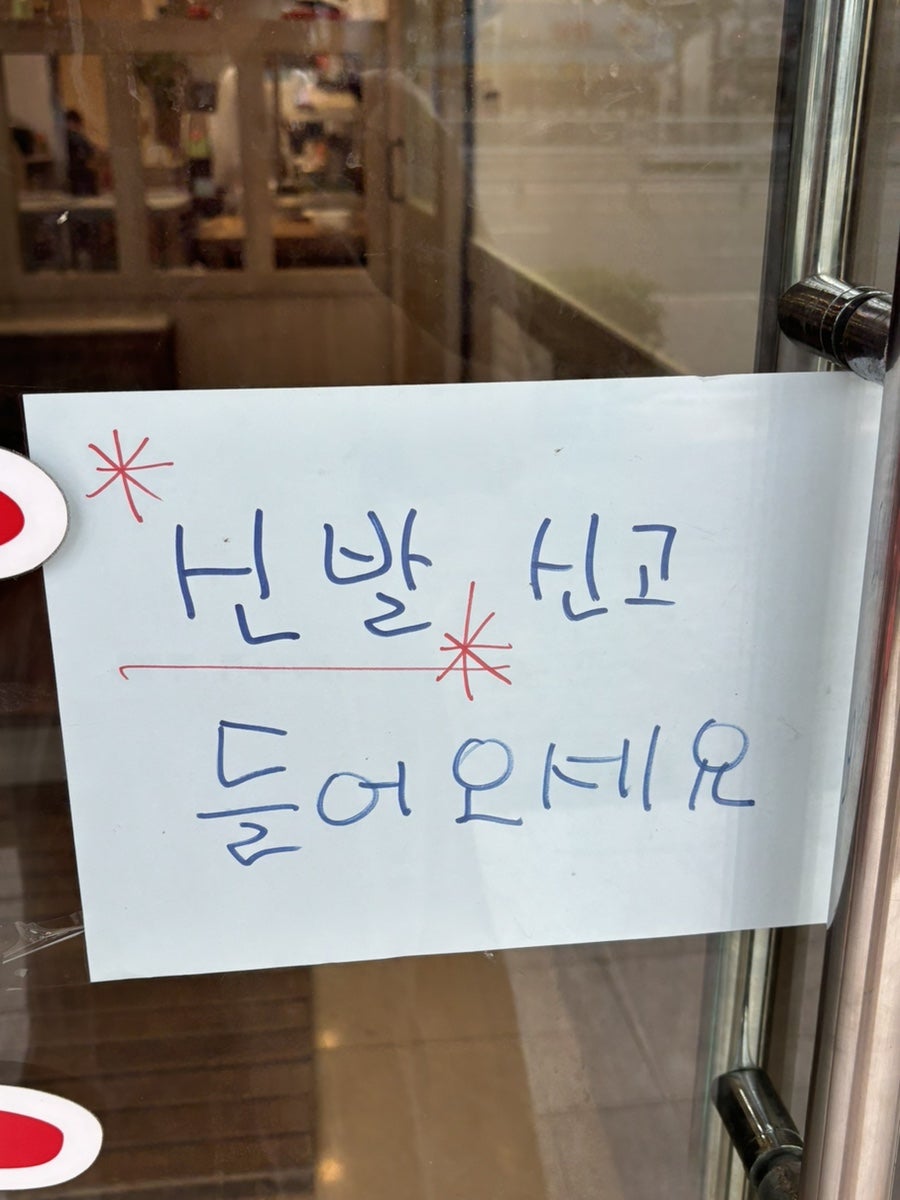 신발 신고
들어오세요